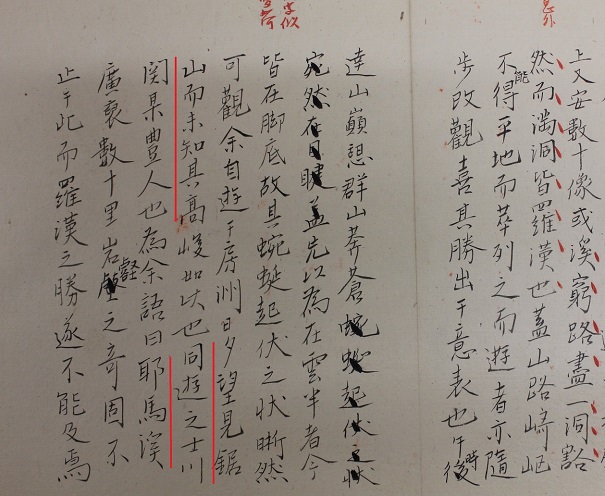 上又安數十像或溪窮路盡一洞豁
然而滿洞皆羅漢也蓋山路崎岖
不能得平地而萃列之而遊者亦隨
步改觀喜其勝出于意表也午時後
達山巔憩群山莽蒼蜿蜒起伏之状
宛然在目睫蓋先以為在雲半者今
皆在脚底故其蜿蜒起伏之状晰然
可觀余自遊于房洲日夕望見鋸
山而未知其高峻如此也同遊之士川
関杲豊人也為余語曰耶馬溪
廣袤數十里岩壑之奇固不
止于此而羅漢之勝遂不能及焉